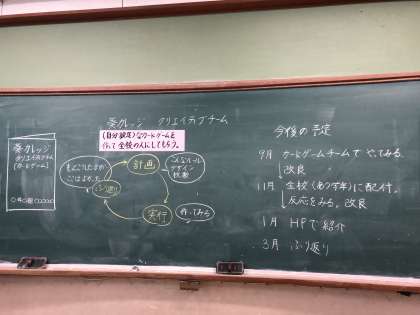 葵カレッジ クリエイティブチーム
(自分設定)なカードゲームを
作って全校の人にしてもらう。
葵カレッジ
クリエイティブチーム
(カードゲーム)
計画
ふり返り
実行
作ってみる
こんなルール
デザイン
枚数
今後の予定
9月 カードゲームチームでやってみる
改良
11月 全校(あつ学年)に配付。
反応をみる。改良
1月 HPで紹介
3月 ふり返り